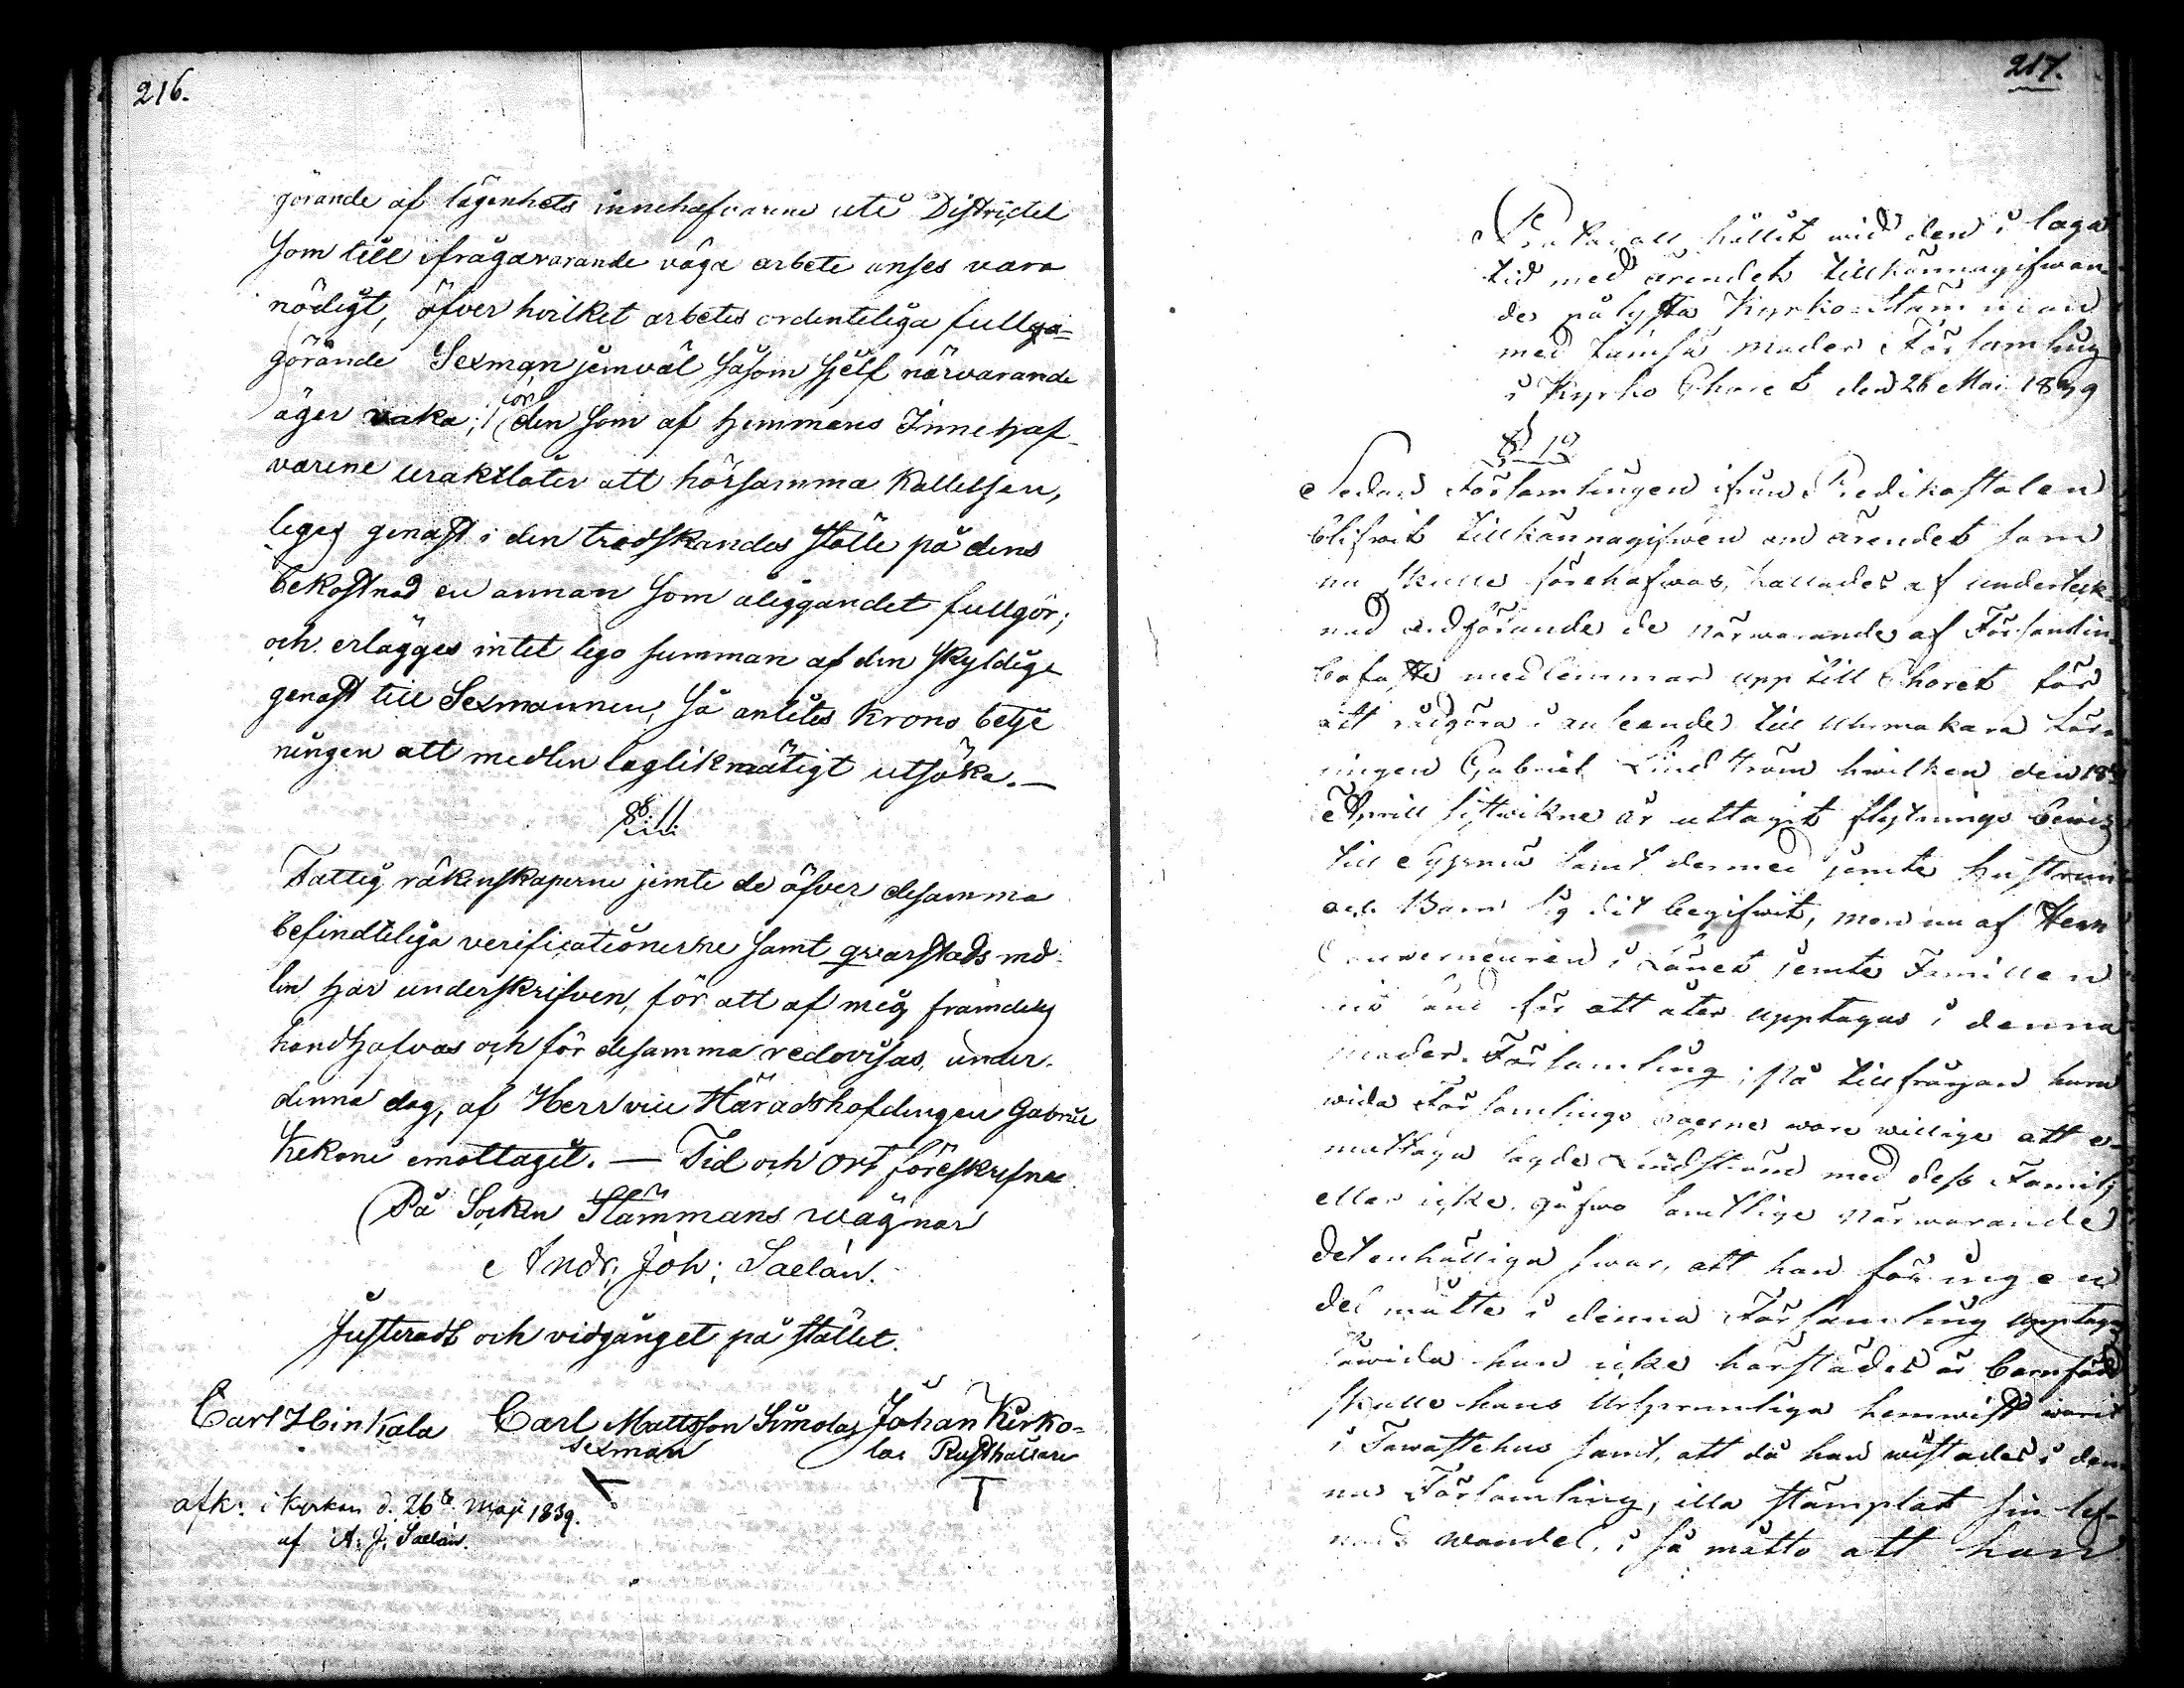 216.
görande af lägenhets innehafvarene uti Districtet
som till ifrågavarande väga arbete anses vara
nödigt, öfver hvilket arbetes ordenteliga fullgö-
görande Sexman jemväl såsom sjelf närvarande
äger vaka; och
den som af Hemmans Innehaf-
varene uraktlåter att hörsamma Kallelsen,
leges genast i den tredskandes ställe på dens
bekostnad en annan som åliggandet fullgör;
och erlägges intet lego summan af den skyldige
genast till Sexmannen, så anlites Krono betje
ningen att medlen laglikmätigt utsöka. —
§ 11.
Fattig räkenskaperne jemte de öfver desamma
befindteliga verificationerne samt qvarstads med-
len har underskrifven, för att af mig framdeles
handhafvas och för desamma redovisas, under
denna dag, af Herr vice Häradshöfdingen Gabriel
Kekoni emottagit. — Tid och Ort föreskrifne
På Socken Stämmans wägnar
Andr. Joh: Saelan.
Justeradt och vidgånget på stället.
Carl Hinkala Carl Mattsson Simola Johan Kerko-
sexman
la Rusthållare
afk: i kyrkan d. 26te Maji 1839.
af A. J. Saelan.
217.
Protocoll, hållit wid den i laga
tid med ärendets tillkännagifwan-
de pålysta Kyrko-Stämman
med Jämsä moder Församling
i Kyrko Choret den 26 Mai 1839
§ 1o
Sedan Församlingen ifrån Predikostolen
blifwit tillkännagifwen om ärendet som
nu skulle förehafwas, kallades af underteck-
nad ordförande de närwarande af Församlin-
bofaste medlemmar upp till Choret för
att rådgöra i anleende till Uhrmakare Lär-
lingen Gabriel Lindström hwilken den 18
Aprill sistwikne år uttagit flyttnings bewis
till Sysmä samt dermed jemte hustrun
och Barn sig dit begifwit, men nu af Herr
Gouverneuren i Länet jemte Famillen
för att åter upptagas i denna
moder Församling; På tillfrågan huru
wida Församlings boerne wore willige att e-
mottaga sagde Lindström med dess Familj
eller icke, gåfwo samtlige närwarande
det enhälliga swar, att han för ingen
del måtte i denna Församling upptagas
såwida han icke härstädes är barnfödd
skulle hans Ursprunliga hemwist warit
i Tawastehus samt, att då han wistades i den-
na Församling, illa stämplat sin lef-
nads wandel, i så måtto att han